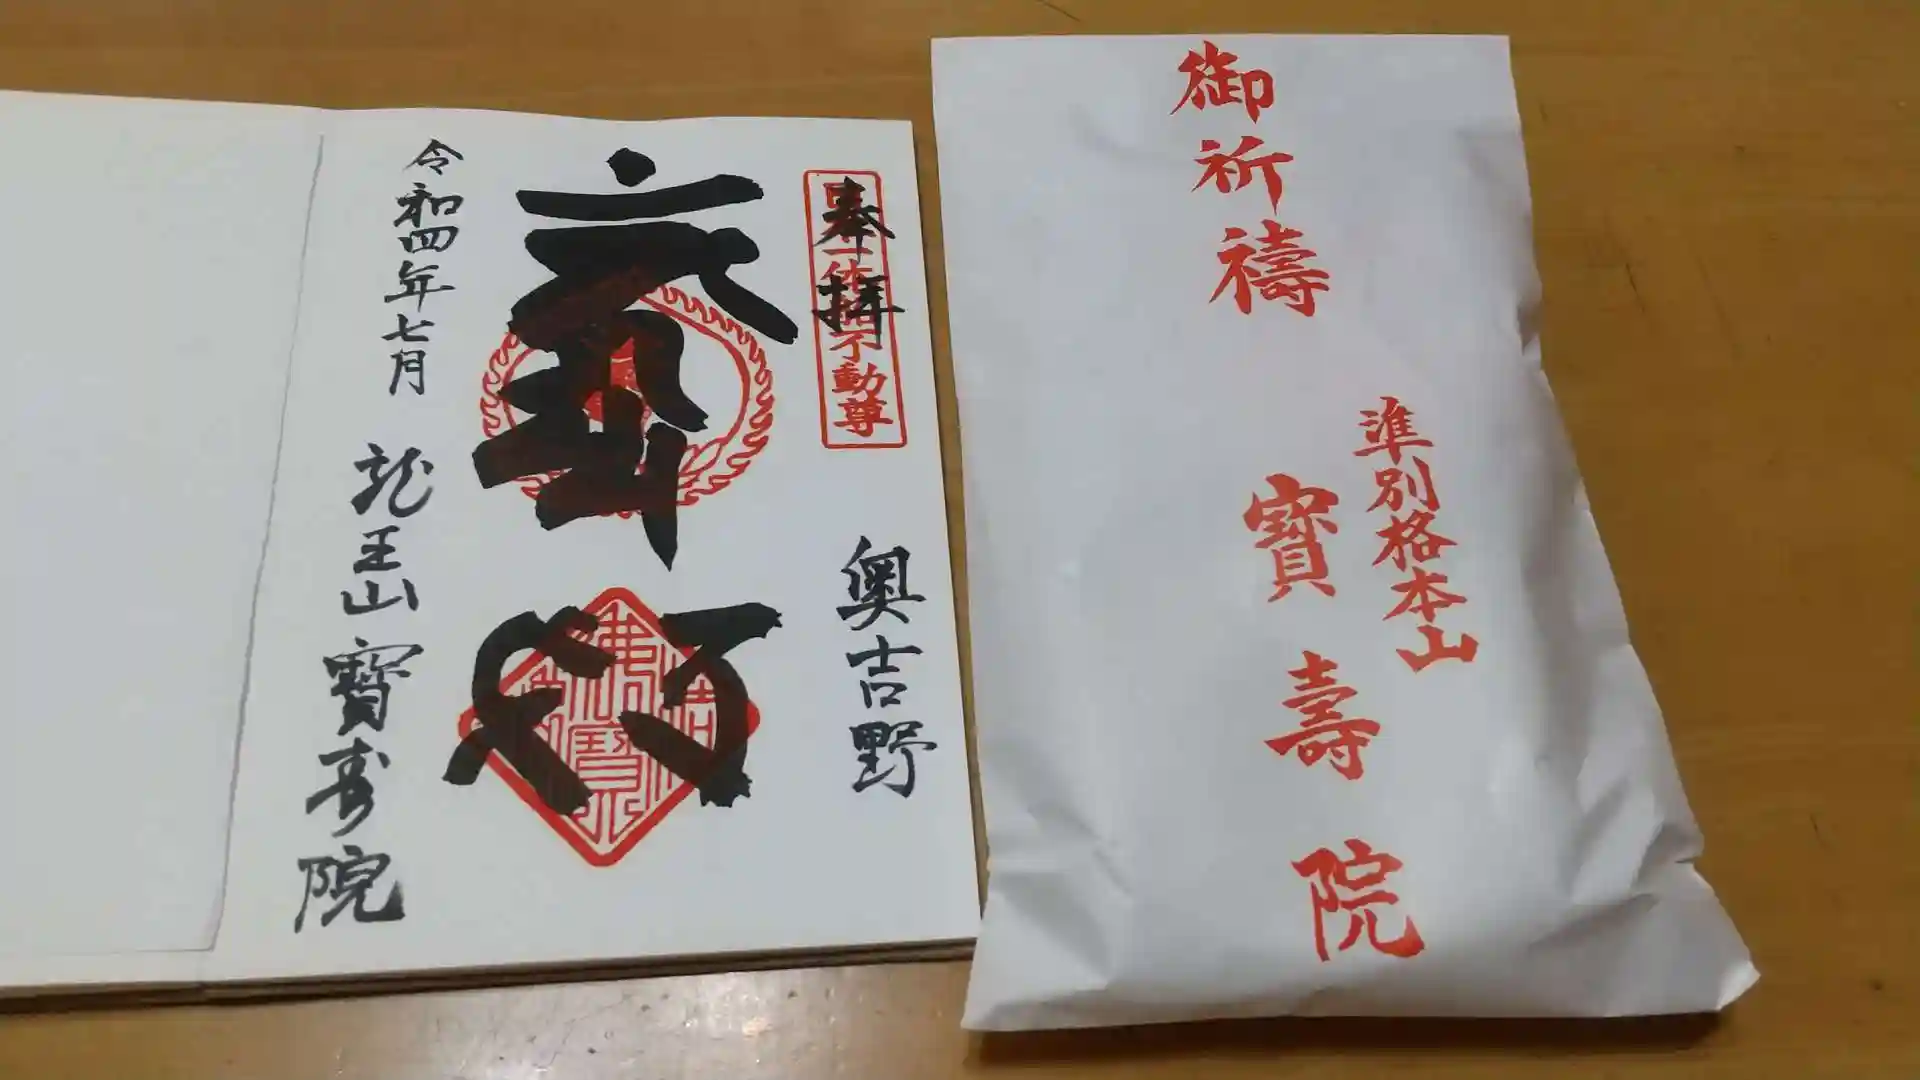 奉拝
日本一体獨不動尊
奥吉野
令和四年七月
龍王山寶寿院
御祈禱
準別格本山
寶壽院